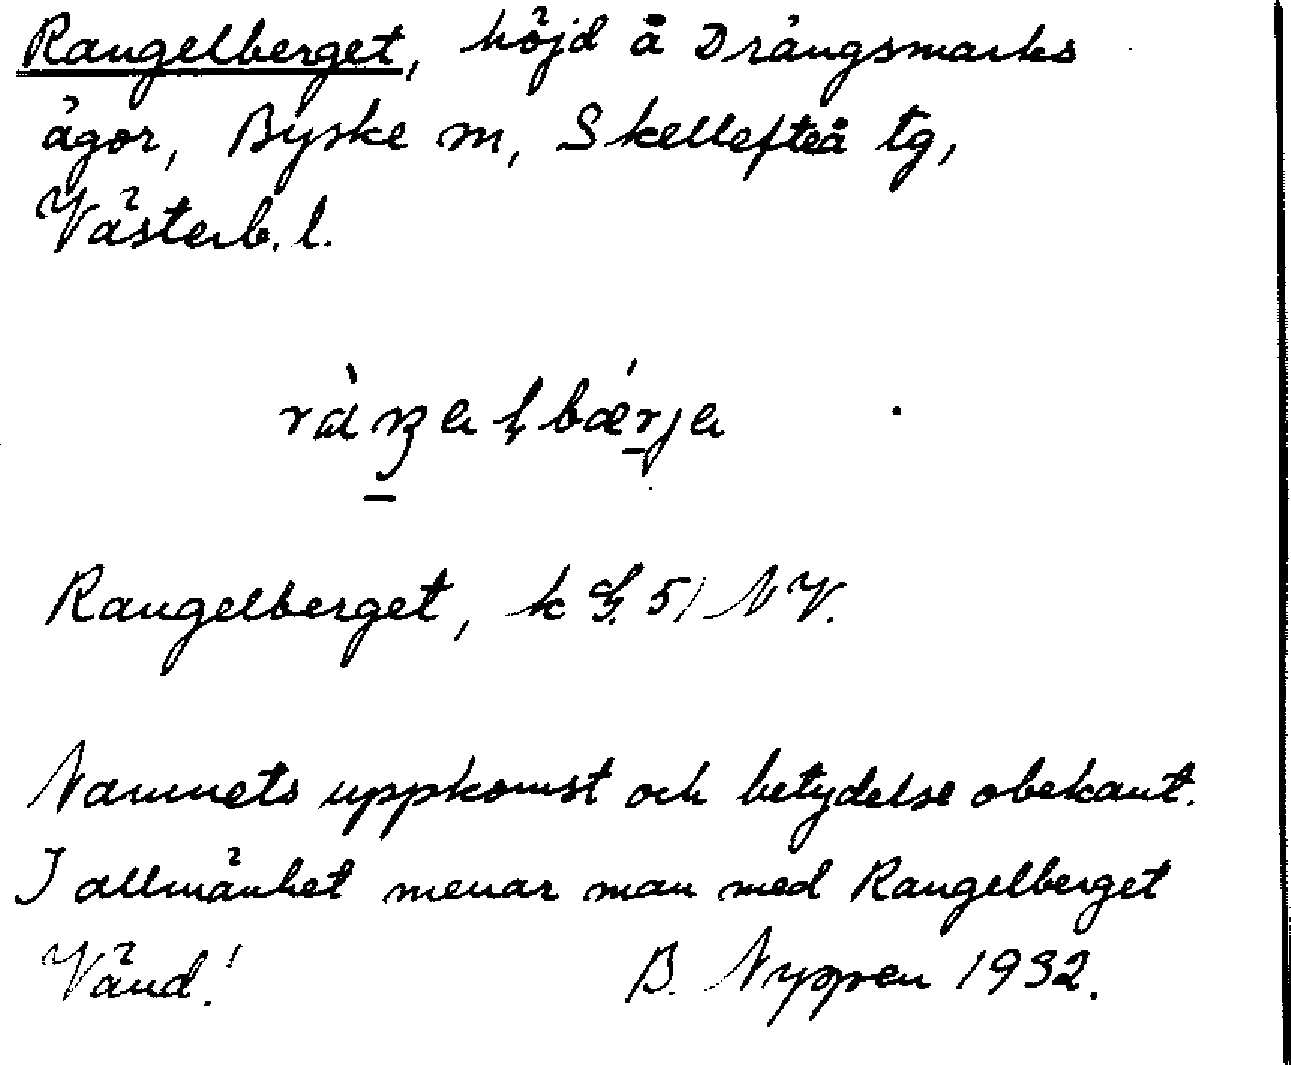 Rangelberget, höjd å Drängsmarks
ägor, Byske sn, Skellefteå tg,
Västerb. l.
Rangelberget, k 51 NV.
Namnets uppkomst och betydelse obekant.
I allmänhet menar man med Rangelberget
Vänd! B. Nygren 1932.